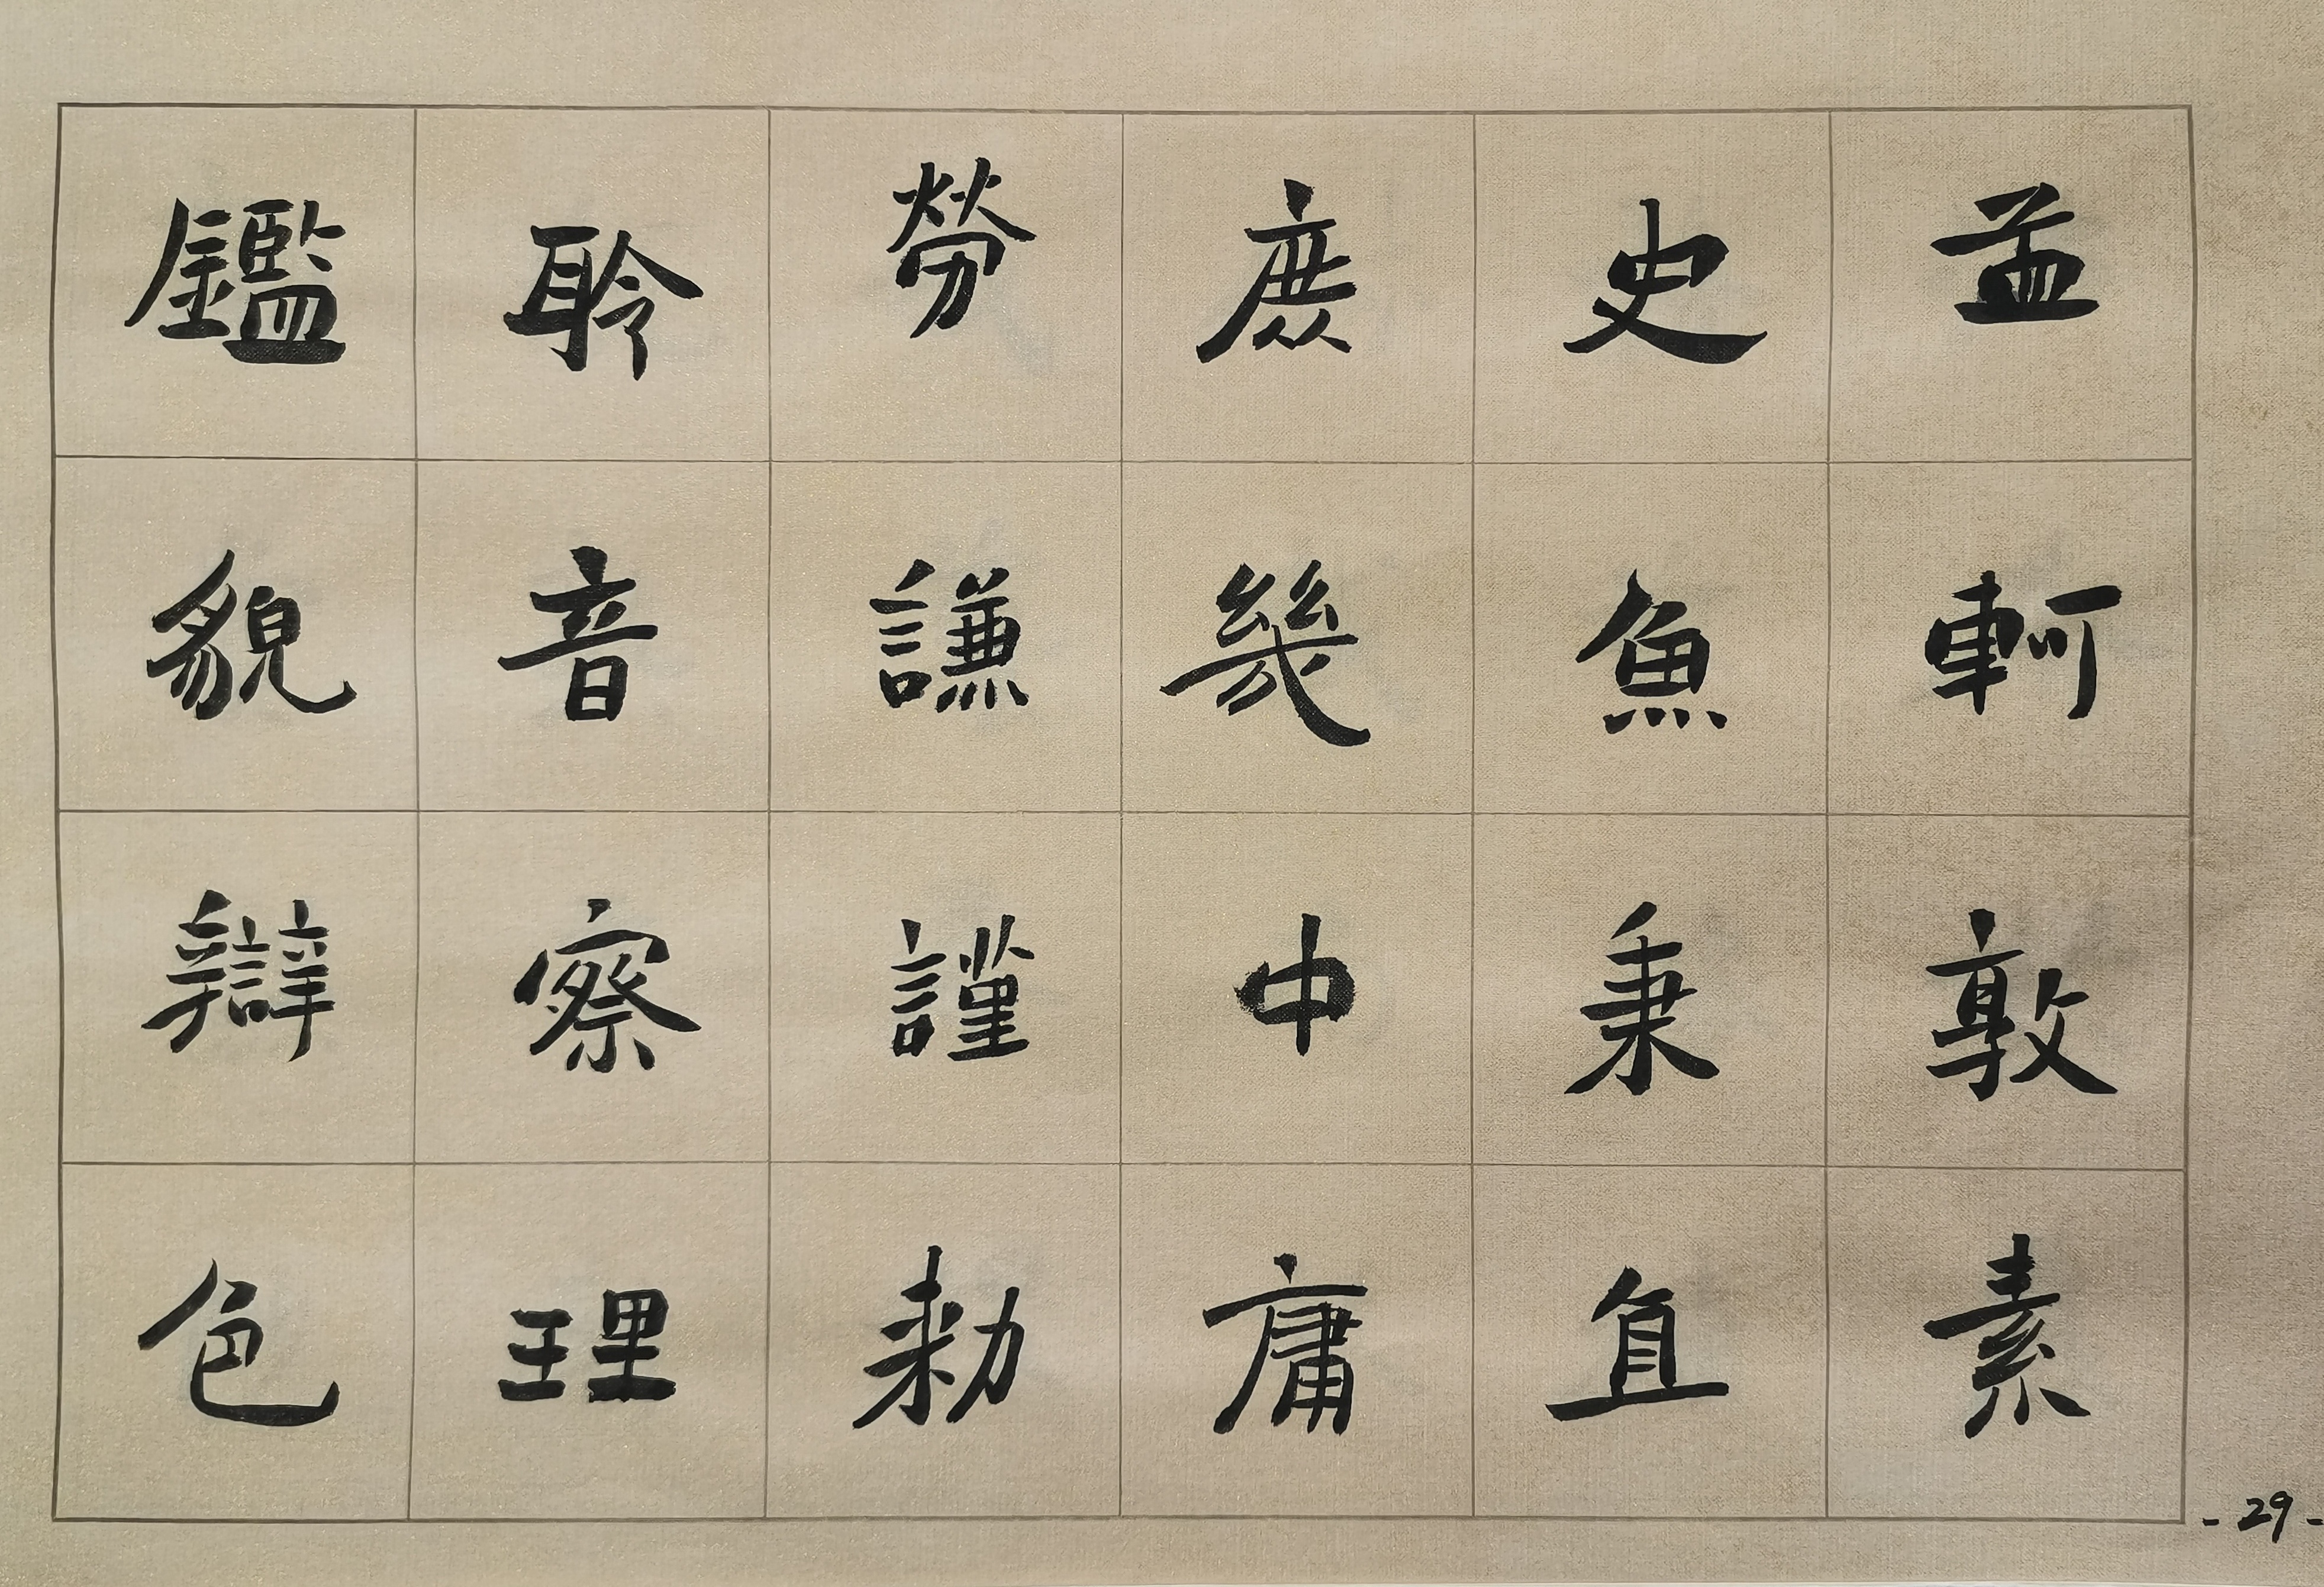 孟軻敦素
史魚秉直
庶幾中庸
勞謙謹勅
聆音察理
鑑貌辯色
- 29 -